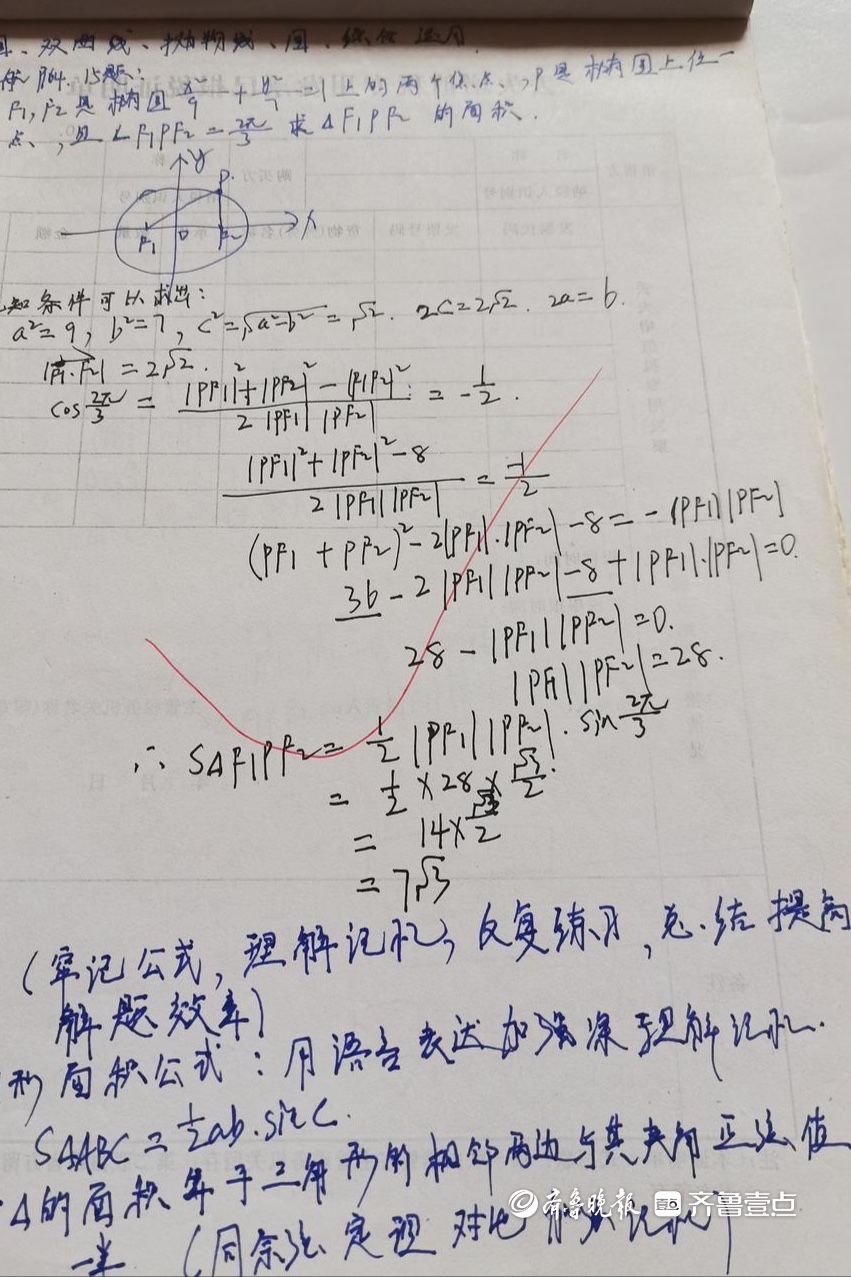 、双曲线、抛物线、圆、综合运用
15题:
F1,F2是椭圆 x²/9 + y²/7 =1上的两个焦点、,P是椭圆上位一
点、,且∠F1PF2=2π/3 求△F1PF2 的面积.
y
P.
F1 O F2 X
知条件可以求出:
a²=9, b²=7, c²=√a²-b² =√2. 2C=2√2. 2a=6.
|F1·F2|=2√2.
cos 2π/3 = |PF1|²+|PF2|²-|F1F2|² / 2|PF1||PF2| = -1/2.
|PF1|²+|PF2|²-8 / 2|PF1||PF2| = -1/2
(PF1+PF2)²-2|PF1|·|PF2|-8=-|PF1||PF2|
36-2|PF1||PF2|-8+|PF1|·|PF2|=0.
28-|PF1||PF2|=0.
|PF1||PF2|=28.
∴ S△F1PF2= 1/2|PF1||PF2|·sin 2π/3
= 1/2×28×√3/2.
= 14×√3/2
= 7√3
(牢记公式,理解记忆,反复练习,总结提高
解题效率)
形面积公式:用语言表达加强深理解记忆.
S△ABC=1/2ab·sinC.
△的面积等于三角形的相邻两边与其夹角正弦值
一半 (同余弦定理 对比 记忆)
齐鲁晚报 齐鲁壹点